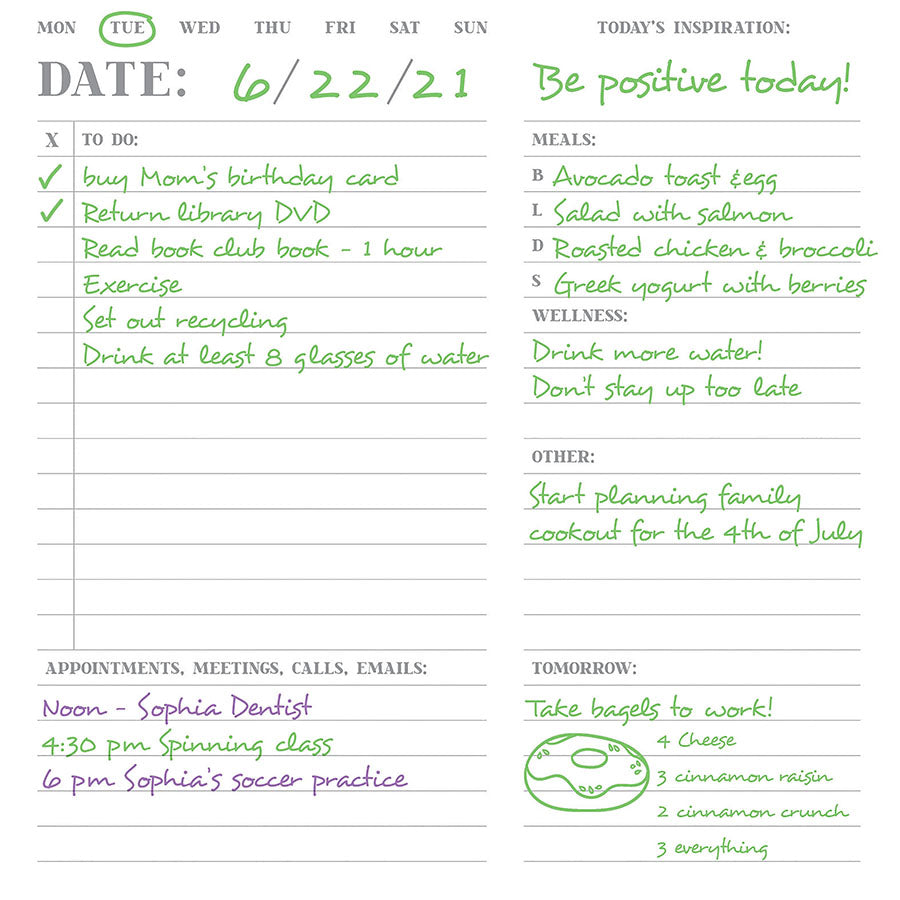 MON TUE WED THU FRI SAT SUN
DATE: 6/22/21
X TO DO:
✓ buy Mom's birthday card
✓ Return library DVD
Read book club book - 1 hour
Exercise
Set out recycling
Drink at least 8 glasses of water
APPOINTMENTS, MEETINGS, CALLS, EMAILS:
Noon - Sophia Dentist
4:30 pm Spinning class
6 pm Sophia's soccer practice
TODAY'S INSPIRATION:
Be positive today!
MEALS:
B Avocado toast & egg
L Salad with salmon
D Roasted chicken & broccoli
S Greek yogurt with berries
WELLNESS:
Drink more water!
Don't stay up too late
OTHER:
Start planning family
cookout for the 4th of July
TOMORROW:
Take bagels to work!
4 Cheese
3 cinnamon raisin
2 cinnamon crunch
3 everything